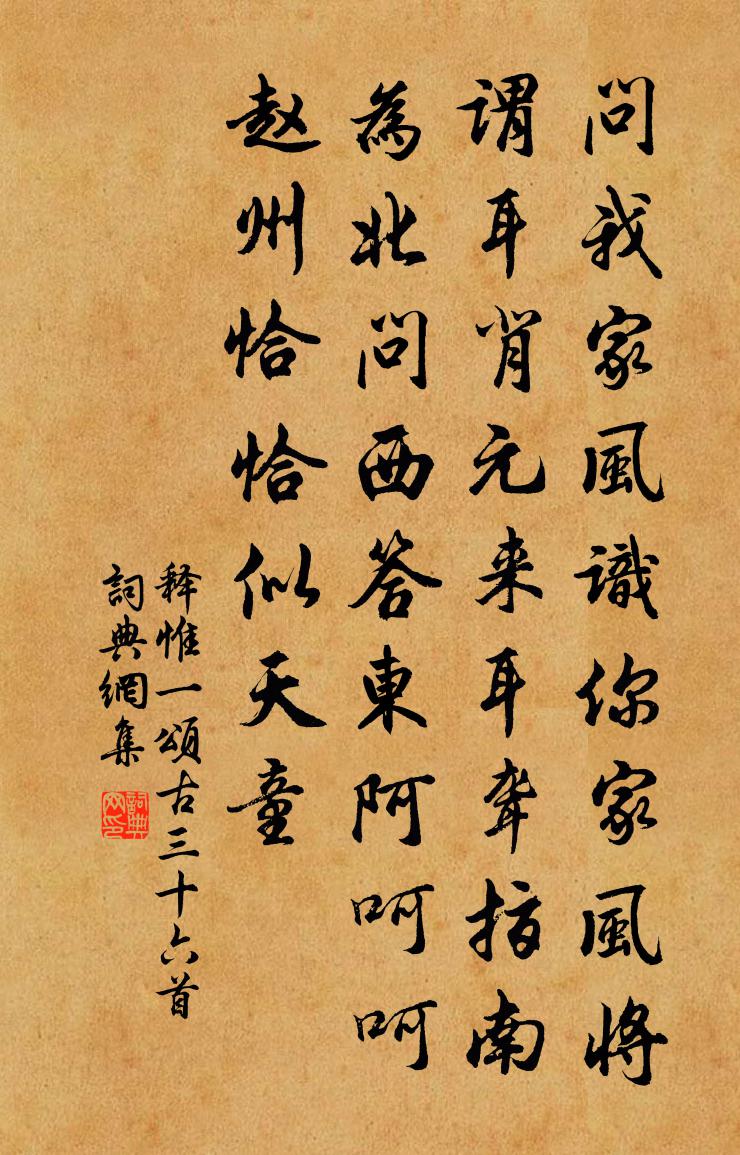 問我家風識你家風將
謂耳背元来耳聾指南
為北問西答東阿呵呵
赵州恰恰似天童
释惟一頌古三十六首
詞典網集
詞典网印